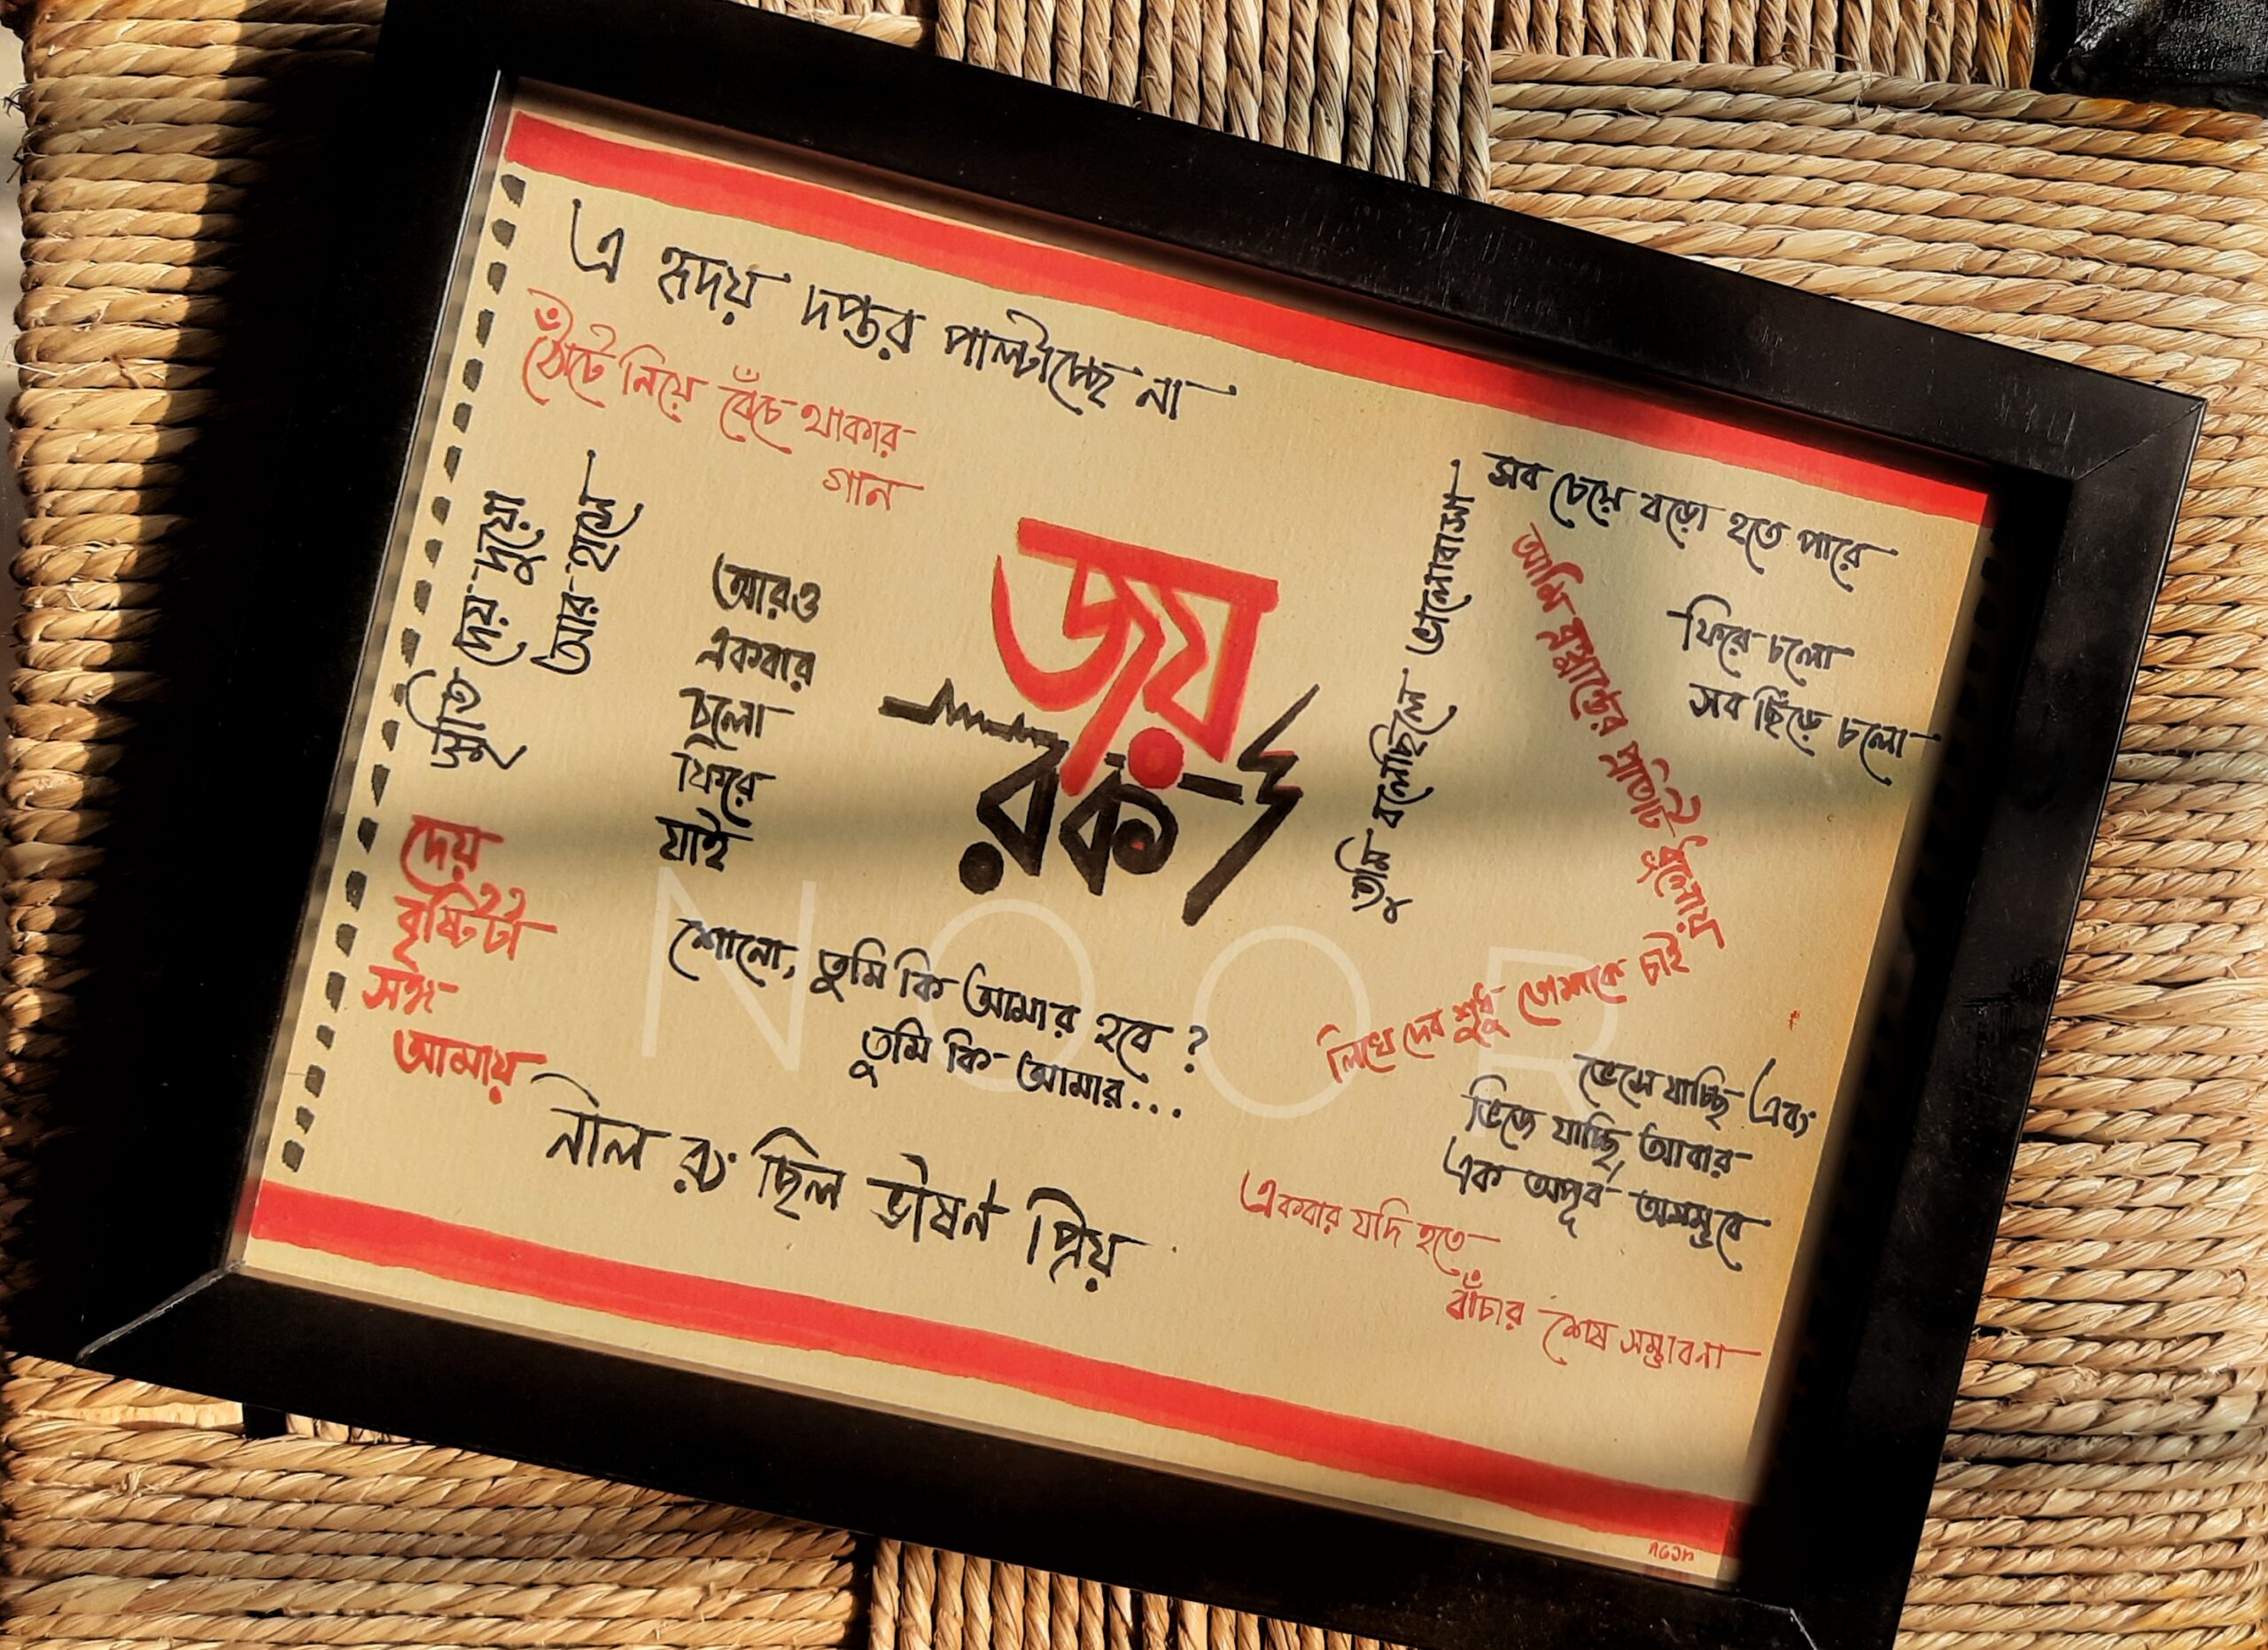 এ হৃদয় দপ্তর পাল্টাচ্ছে না
ঠোঁটে নিয়ে বেঁচে থাকার
গান
স্মৃতি দেয় দুয়ো
আর হাসে
আরও
একবার
চলো
ফিরে
যাই
জয়
রক
তুমি বলেছিলে ভালোবাসা
সব চেয়ে বড়ো হতে পারে
ফিরে চলো
সব ছিঁড়ে চলো
আমি ব্রহ্মান্ডের প্রতিটি ধুলোয়
লিখে দেব শুধু তোমাকে চাই
দেয়
বৃষ্টিটা
সঙ্গ
আমায়
শোনো, তুমি কি আমার হবে ?
তুমি কি আমার...
নীল রং ছিল ভীষণ প্রিয়
ভেসে যাচ্ছি এবং
ভিজে যাচ্ছি আবার
এক অপূর্ব অসম্ভবে
একবার যদি হতে
বাঁচার শেষ সম্ভাবনা
NOOR